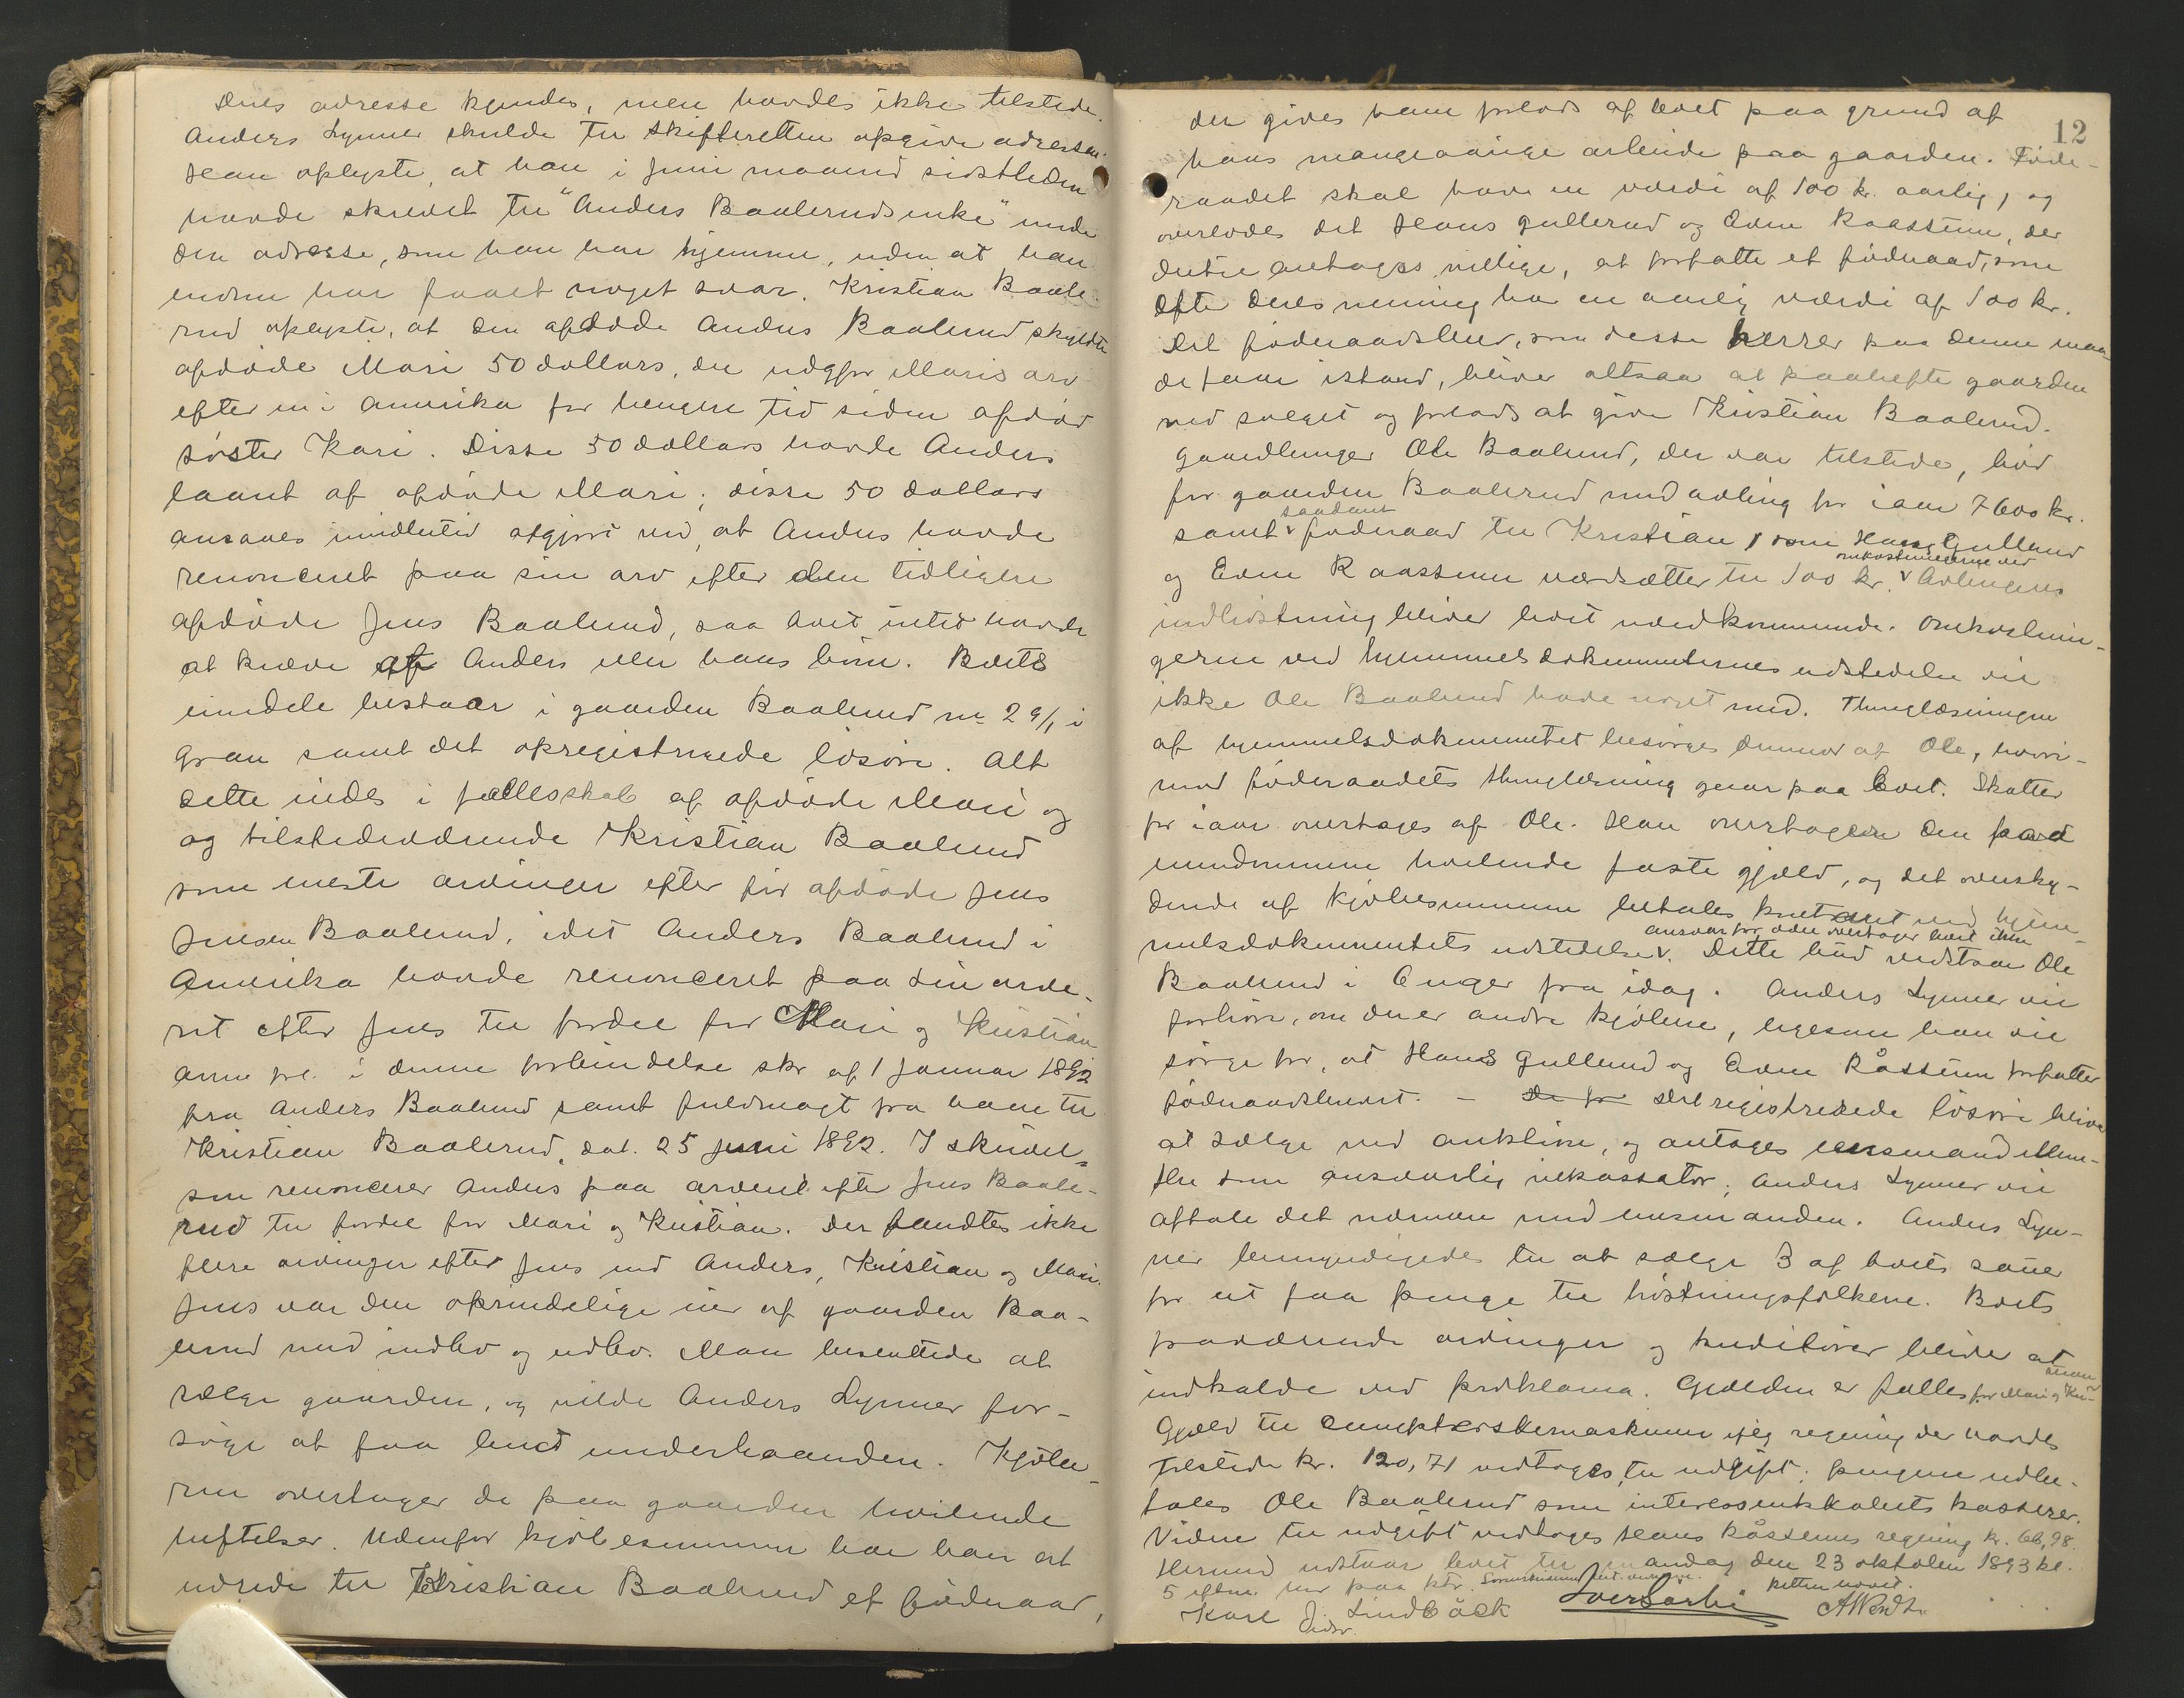 Deres adresse kjendes, men havdes ikke tilstede.
Anders Lynner skulde til skifteretten opgive adressen.
Han oplyste, at han i Juni maaned sidstleden
havde skrevet til "Anders Baalerudsenke" under
den adresse, som han har hjemme, uden at han
endnu har faaet noget svar. Kristian Baale-
rud oplyste, at den afdøde Anders Baalerud skyldte
afdøde Mari 50 dollars, der udgjør Maris arv
efter en i Amerika for længere tid siden afdød
søster Kari. Disse 50 dollars havde Anders
laant af afdøde Mari; disse 50 dollars
ansaaes imidlertid afgjort ved, at Anders havde
renonceret paa sin arv efter den tidligere
afdøde Jens Baalerud, saa boet intet havde
at kræve af Anders eller hans børn. Boets
eiendele bestaar i gaarden Baalerud no 29/1 i
Gran samt det opregistrerede løsøre. Alt
dette eiedes i fællesskab af afdøde Mari og
og tilstedeværende Kristian Baalerud
som eneste arvinger efter før afdøde Jens
Jensen Baalerud, idet Anders Baalerud i
Amerika havde renonceret paa sin arve-
ret efter Jens til fordel for Mari og Kristian
i denne forbindelse skr. af 1 Januar 1892
fra Anders Baalerud samt fuldmagt fra ham til
Kristian Baalerud, dat. 25 juni 1892. I skrivel-
sen renoncerer Anders paa arven efter Jens Baale-
rud til fordel for Mari og Kristian. Der fandtes ikke
flere arvinger efter Jens end Anders, Kristian og Mari.
Jens var den oprindelige eier af gaarden Baa-
lerud med indbo og udbo. Man besluttede at
sælge gaarden, og vilde Anders Lynner for-
søge at faa bud underhaanden. Kjøbe-
ren overtager de paa gaarden hvilende
heftelser. Udenfor kjøbesummen har han at
udrede til Kristian Baalerud et føderaad,
12
der gives ham forlods af boet paa grund af
hans mangeaarige arbeide paa gaarden. Føde-
raadet skal have en værdi af 100 kr. aarlig, og
overlodes det Hans Gullerud og Even Raassum, der
dertil antages villige, at forfatte et føderaad, som
efter deres mening har en aarlig værdi af 100 kr.
Det føderaadsbrev, som disse herrer paa denne maa-
de faar istand, bliver altsaa at paahefte gaarden
ved salget og forlods at give Kristian Baalerud.
Gaardbruger Ole Baalerud, der var tilstede, bød
for gaarden Baalerud med avling for iaar 7600 kr.
samt saadant føderaad til Kristian, som Hans Gullerud
og Even Raassum værdsætter til 100 kr. omkostningerne ved Avlingens
indhøstning bliver boet uvedkommende. Omkostnin-
gerne ved hjemmelsdokumenternes udstedelse vil
ikke Ole Baalerud have noget med. Thinglæsningen
af hjemmelsdokumentet besørges derimod af Ole, hvori-
mod føderaadets thinglæsning gaar paa boet. Skatter
for iaar overtages af Ole. Han overtager den paa
eiendommen hvilende faste gjæld, og det oversky-
dende af kjøbesummen betales kontant ved hjem-
melsdokumentets udstedelse ansvar for avlen overtager boet ikke. Dette bud vedstaar Ole
Baalerud i 6 uger fra idag. Anders Lynner vil
forhøre, om der er andre kjøbere, ligesom han vil
sørge for, at Hans Gullerud og Even Råssum forfatter
føderaadsbrevet. – De for Det registrerede løsøre bliver
at sælge ved auktion, og antages lensmand
som ansvarlig inkassator; Anders Lynner vil
aftale det nærmere med lensmanden. Anders Lyn-
ner bemyndigedes til at sælge 3 af boets sauer
for at faa penge til høstningsfolkene. Boets
paaværende arvinger og kreditorer bliver at
indkalde ved proklama. Gjælden er fælles for Mari og Kri-
Gjæld til ifølg regning der havdes
tilstede kr. 120,71 vedtoges til udgift; pengene udbe-
tales Ole Baalerud som interessentskabets kasserer.
Videre til udgift vedtoges Hans Råssums regning kr. 66,98.
Hermed udstaar boet til mandag den 23 oktober 1893 kl.
5 efterm. her paa ktr. Retten hævet.
Karl J. Lindbäck Iver Sørbi AWendt